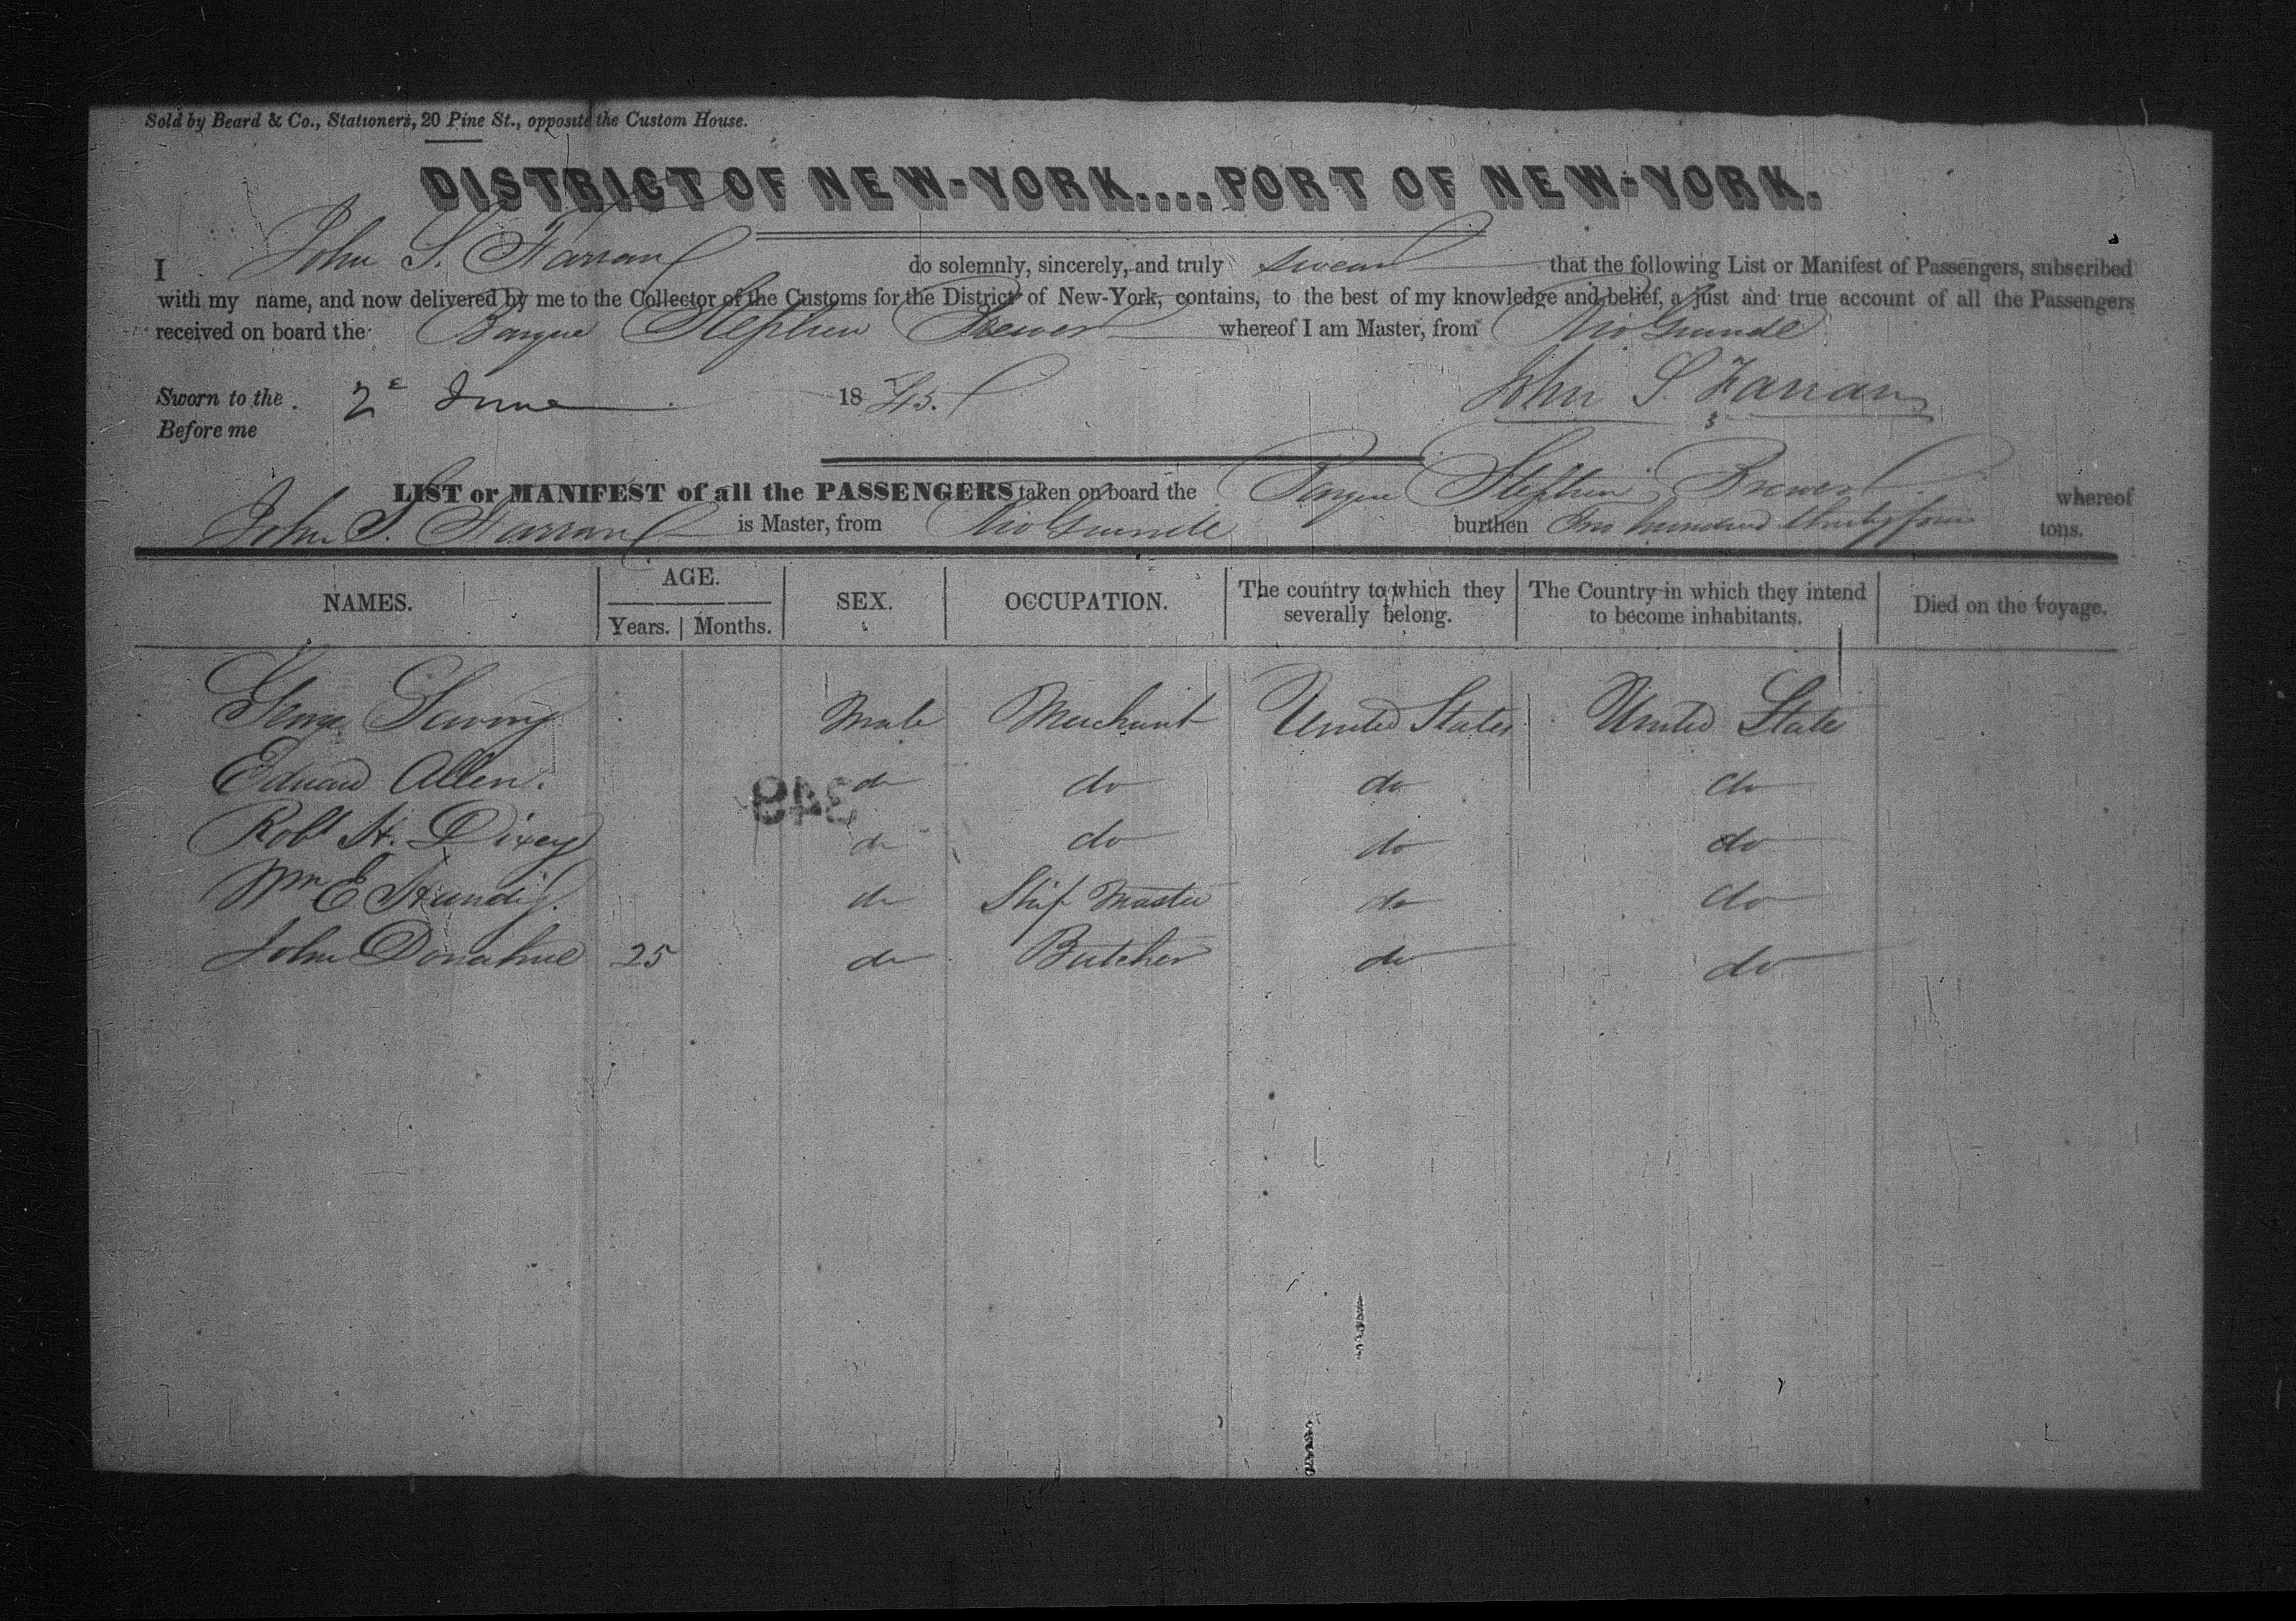 Sold by Beard & Co., Stationers, 20 Pine St., opposite the Custom House.
DISTRICT OF NEW-YORK....PORT OF NEW-YORK.
I John S. Farran do solemnly, sincerely, and truly swear that the following List or Manifest of Passengers, subscribed
with my name, and now delivered by me to the Collector of the Customs for the District of New-York, contains, to the best of my knowledge and belief, a just and true account of all the Passengers
received on board the Barque Stephen Brewer whereof I am Master, from Rio Grande
Sworn to the 2d June 1845. John S. Farran
Before me
LIST or MANIFEST of all the PASSENGERS taken on board the Barque Stephen Brewer whereof
John S. Farran is Master, from Rio Grande burthen Two hundred thirty four tons.
NAMES. AGE. SEX. OCCUPATION. The country to which they severally belong. The Country in which they intend to become inhabitants. Died on the voyage.
Years. Months.
George Male Merchant United States United States
Edward Allen. do do do do
Robt H. Dixey do do do do
348
Wm E do Ship Master do do
John Donahue 25 do Butcher do do